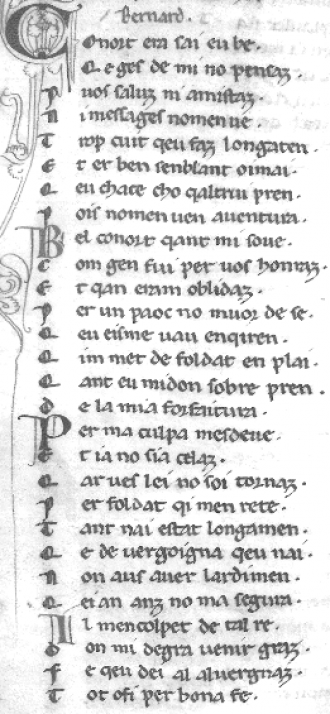 Bernard.
Conort era sai eu be.
Q e ges de mi no pensaz
N uos saluz ni amistaz.
N i messages nomen ue.
T rop cuit qeu faz longaten.
E t er ben senblant oimai.
Q eu chace cho qaltrui pren.
P ois nomen uen auentura.
B el conort qant mi soue.
C om gen fui per uos honraz.
E t qan eram oblidaz.
P er un paoc no muor de se.
Q eu eisme uau enqiren.
Q im met de foldat en plai.
Q ant eu midon sobre pren.
D e la mia forfaitura.
P er ma culpa mesdeue.
E t ia no sia celaz.
Q ar ues lei no soi tornaz.
P er foldat qi men rete.
T ant nai estat longamen.
Q e de uergoigna qeu nai.
N on aus auer lardimen.
Q ei an anz no ma segura.
I l mencolpet de tal re.
D on mi degra uenir graz.
F e qeu dei al aluergnaz.
T ot o fi per bona fe.